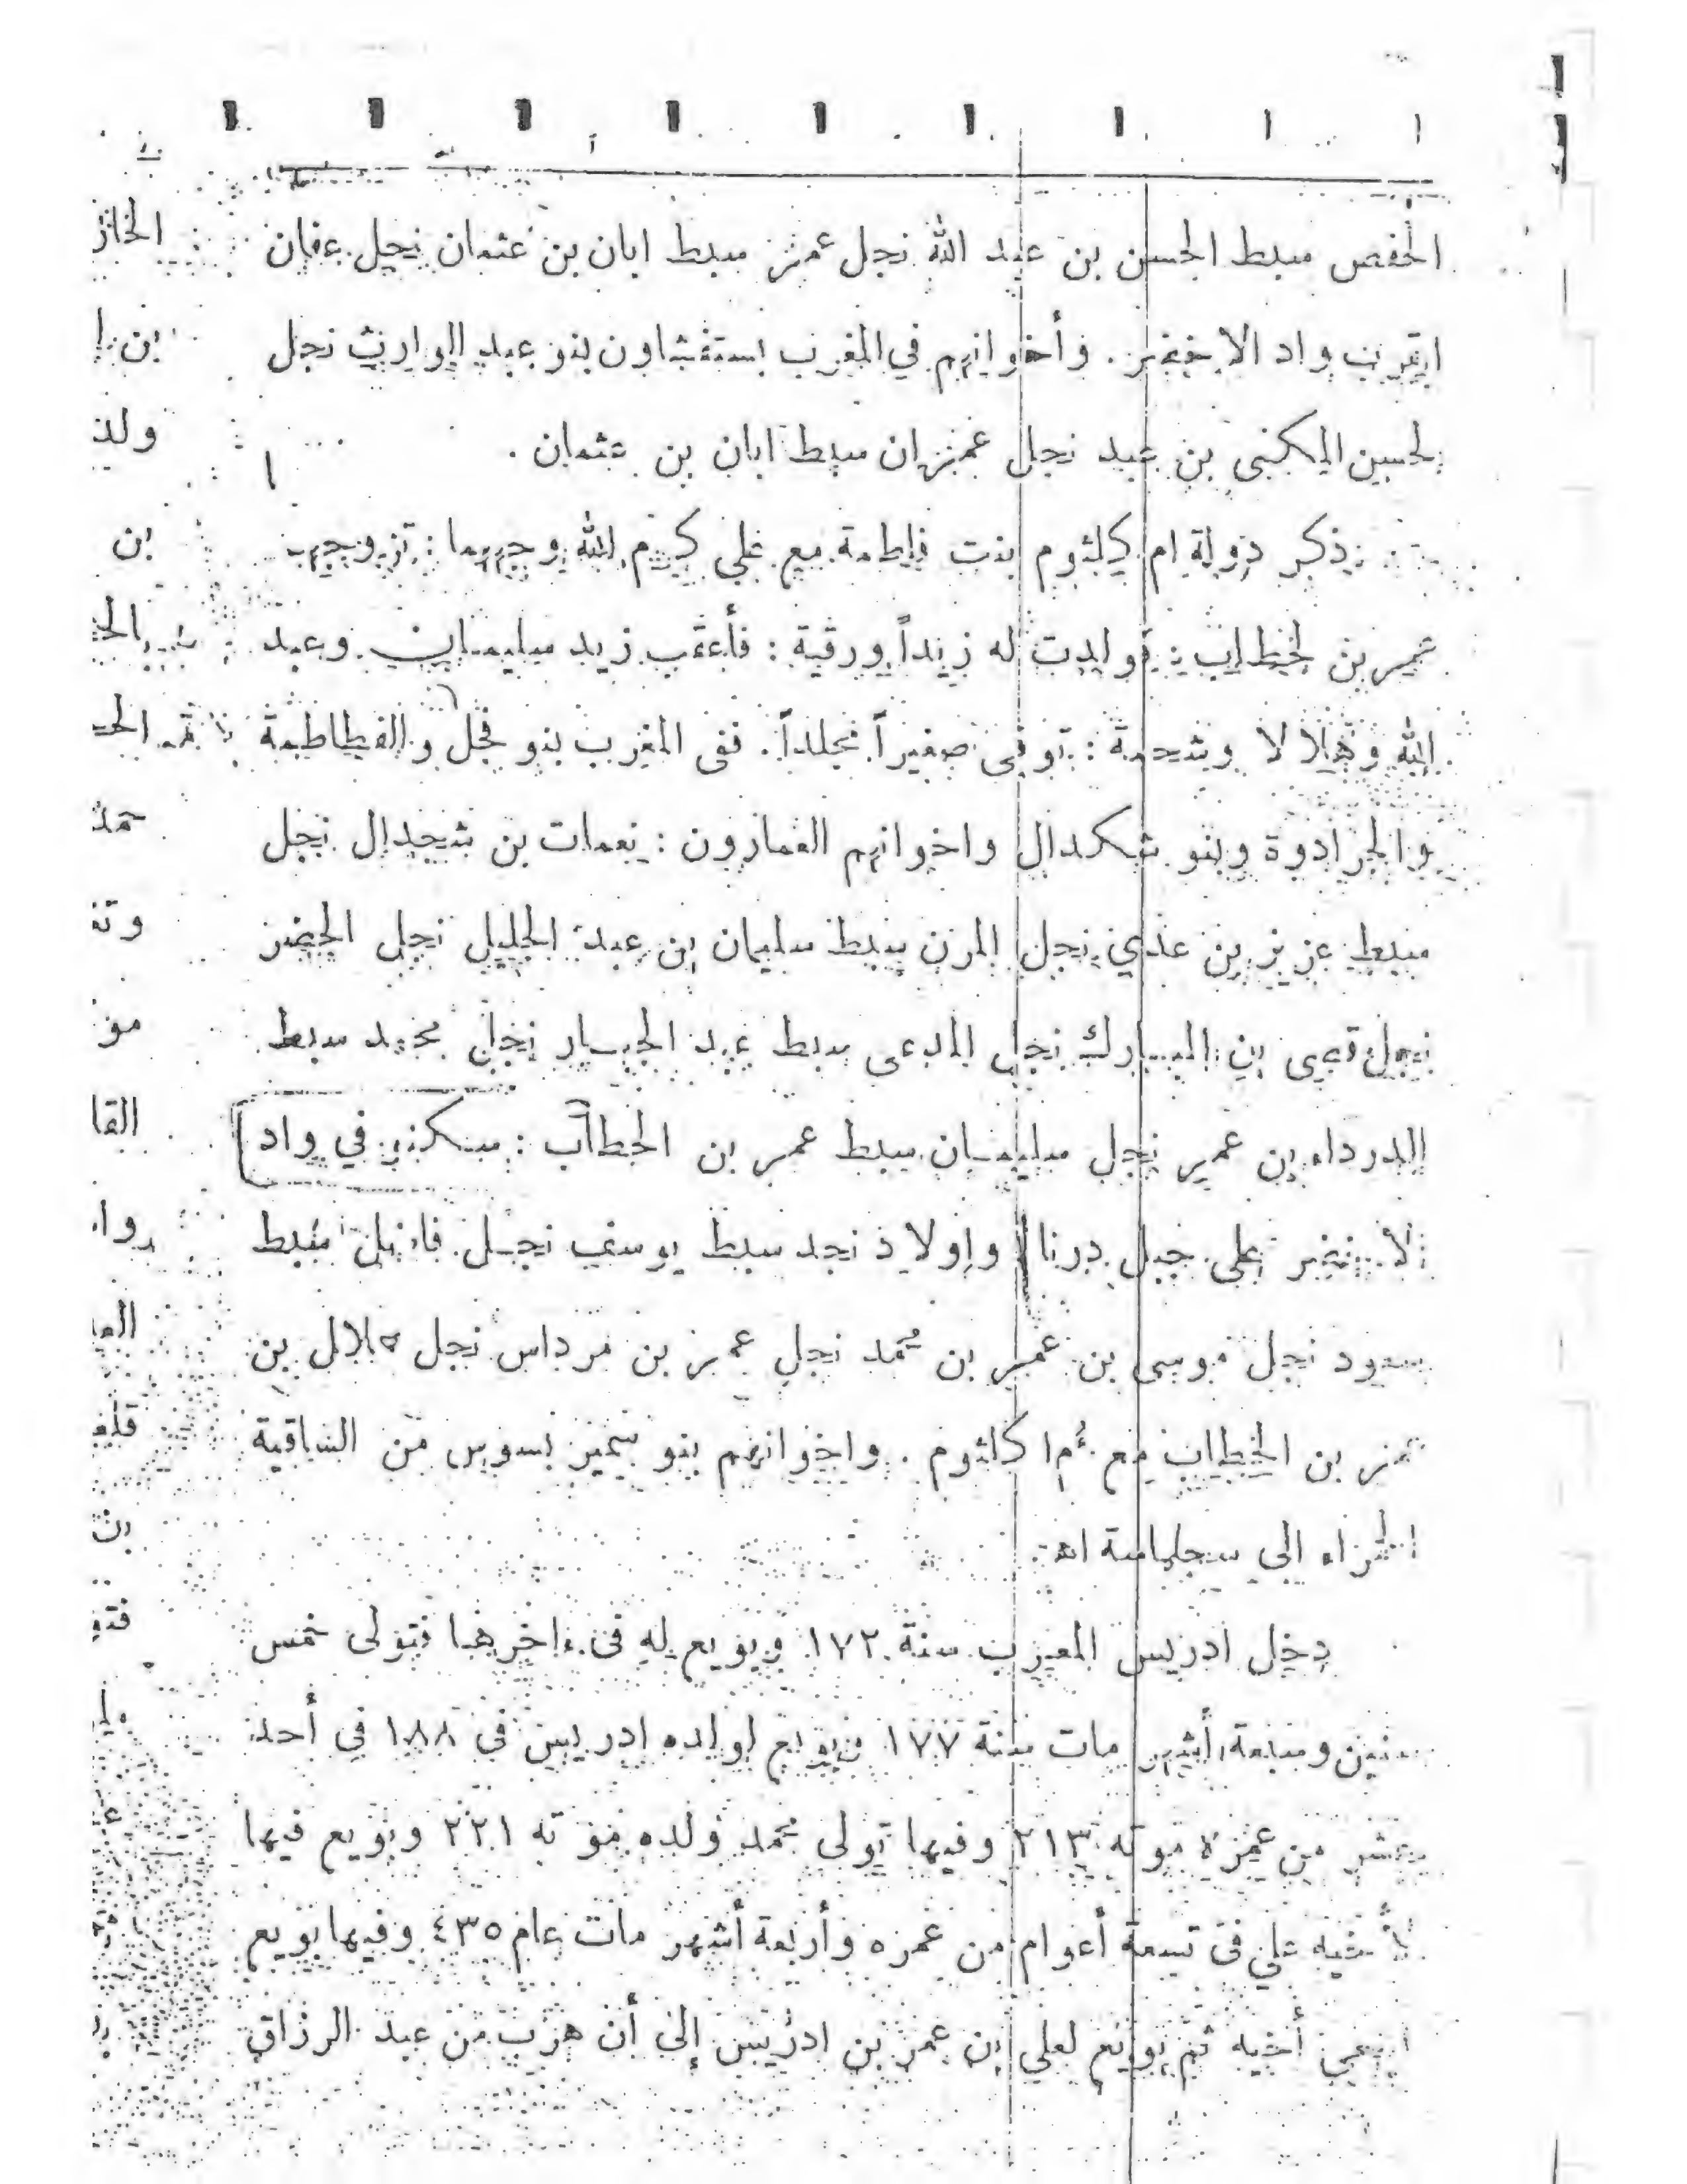 الحفص سبط الحسن بن عبد الله نجل عمر سبط ابان بن عثمان نجل عفان
اقرب واد الاخضر . وأخوانهم في المغرب بستفشاون بنو عبد الوارث نجل
الحسين المكنى بن عبيد نجل عمران سبط ابان بن عثمان .
ذكر دولة ام كلثوم بنت فاطمة مع علي كرم الله وجههما : تزوجها
عمر بن الخطاب : فولدت له زيداً ورقية : فأعقب زيد سليمان وعبد
الله وهلالا وشحمة : توفى صغيراً مجلداً . ففى المغرب بنو فجل والفطاطمة
والجرادوة وبنو شكدال واخوانهم الغمازون : نعمات بن شجدال نجل
سبط عزيز بن عدي نجل المزن سبط سليمان بن عبد الجليل نجل الخضر
نجل قصى بن المبارك نجل المدعى سبط عبد الجبار نجل محمد سبط
الدرداء بن عمير نجل سليمان سبط عمر بن الخطاب : سكنو في واد
الاخضر على جبل درنا واولاد نجد سبط يوسف نجل سبط
سعود نجل موسى بن عمر بن محمد نجل عمر بن مرداس نجل هلال بن
عمر بن الخطاب مع أم كلثوم . واخوانهم بنو سمير بسوس من الساقية
الحمراء الى سجلماسة اهـ .
دخل ادريس المغرب سنة ١٧٢ وبويع له فى ءاخرها فتولى خمس
سنين وسبعة أشهر مات سنة ١٧٧ وبويع لولده ادريس في ١٨٨ في أحد
عشر من عمره موته ٢١٣ وفيها تولى محمد ولده موته ٢٢١ وبويع فيها
لأخيه علي فى تسعة أعوام من عمره وأربعة أشهر مات عام ٤٣٥ وفيها بويع
يحيى أخيه ثم بويع لعلي بن عمر بن ادريس إلى أن هرب من عبد الرزاق